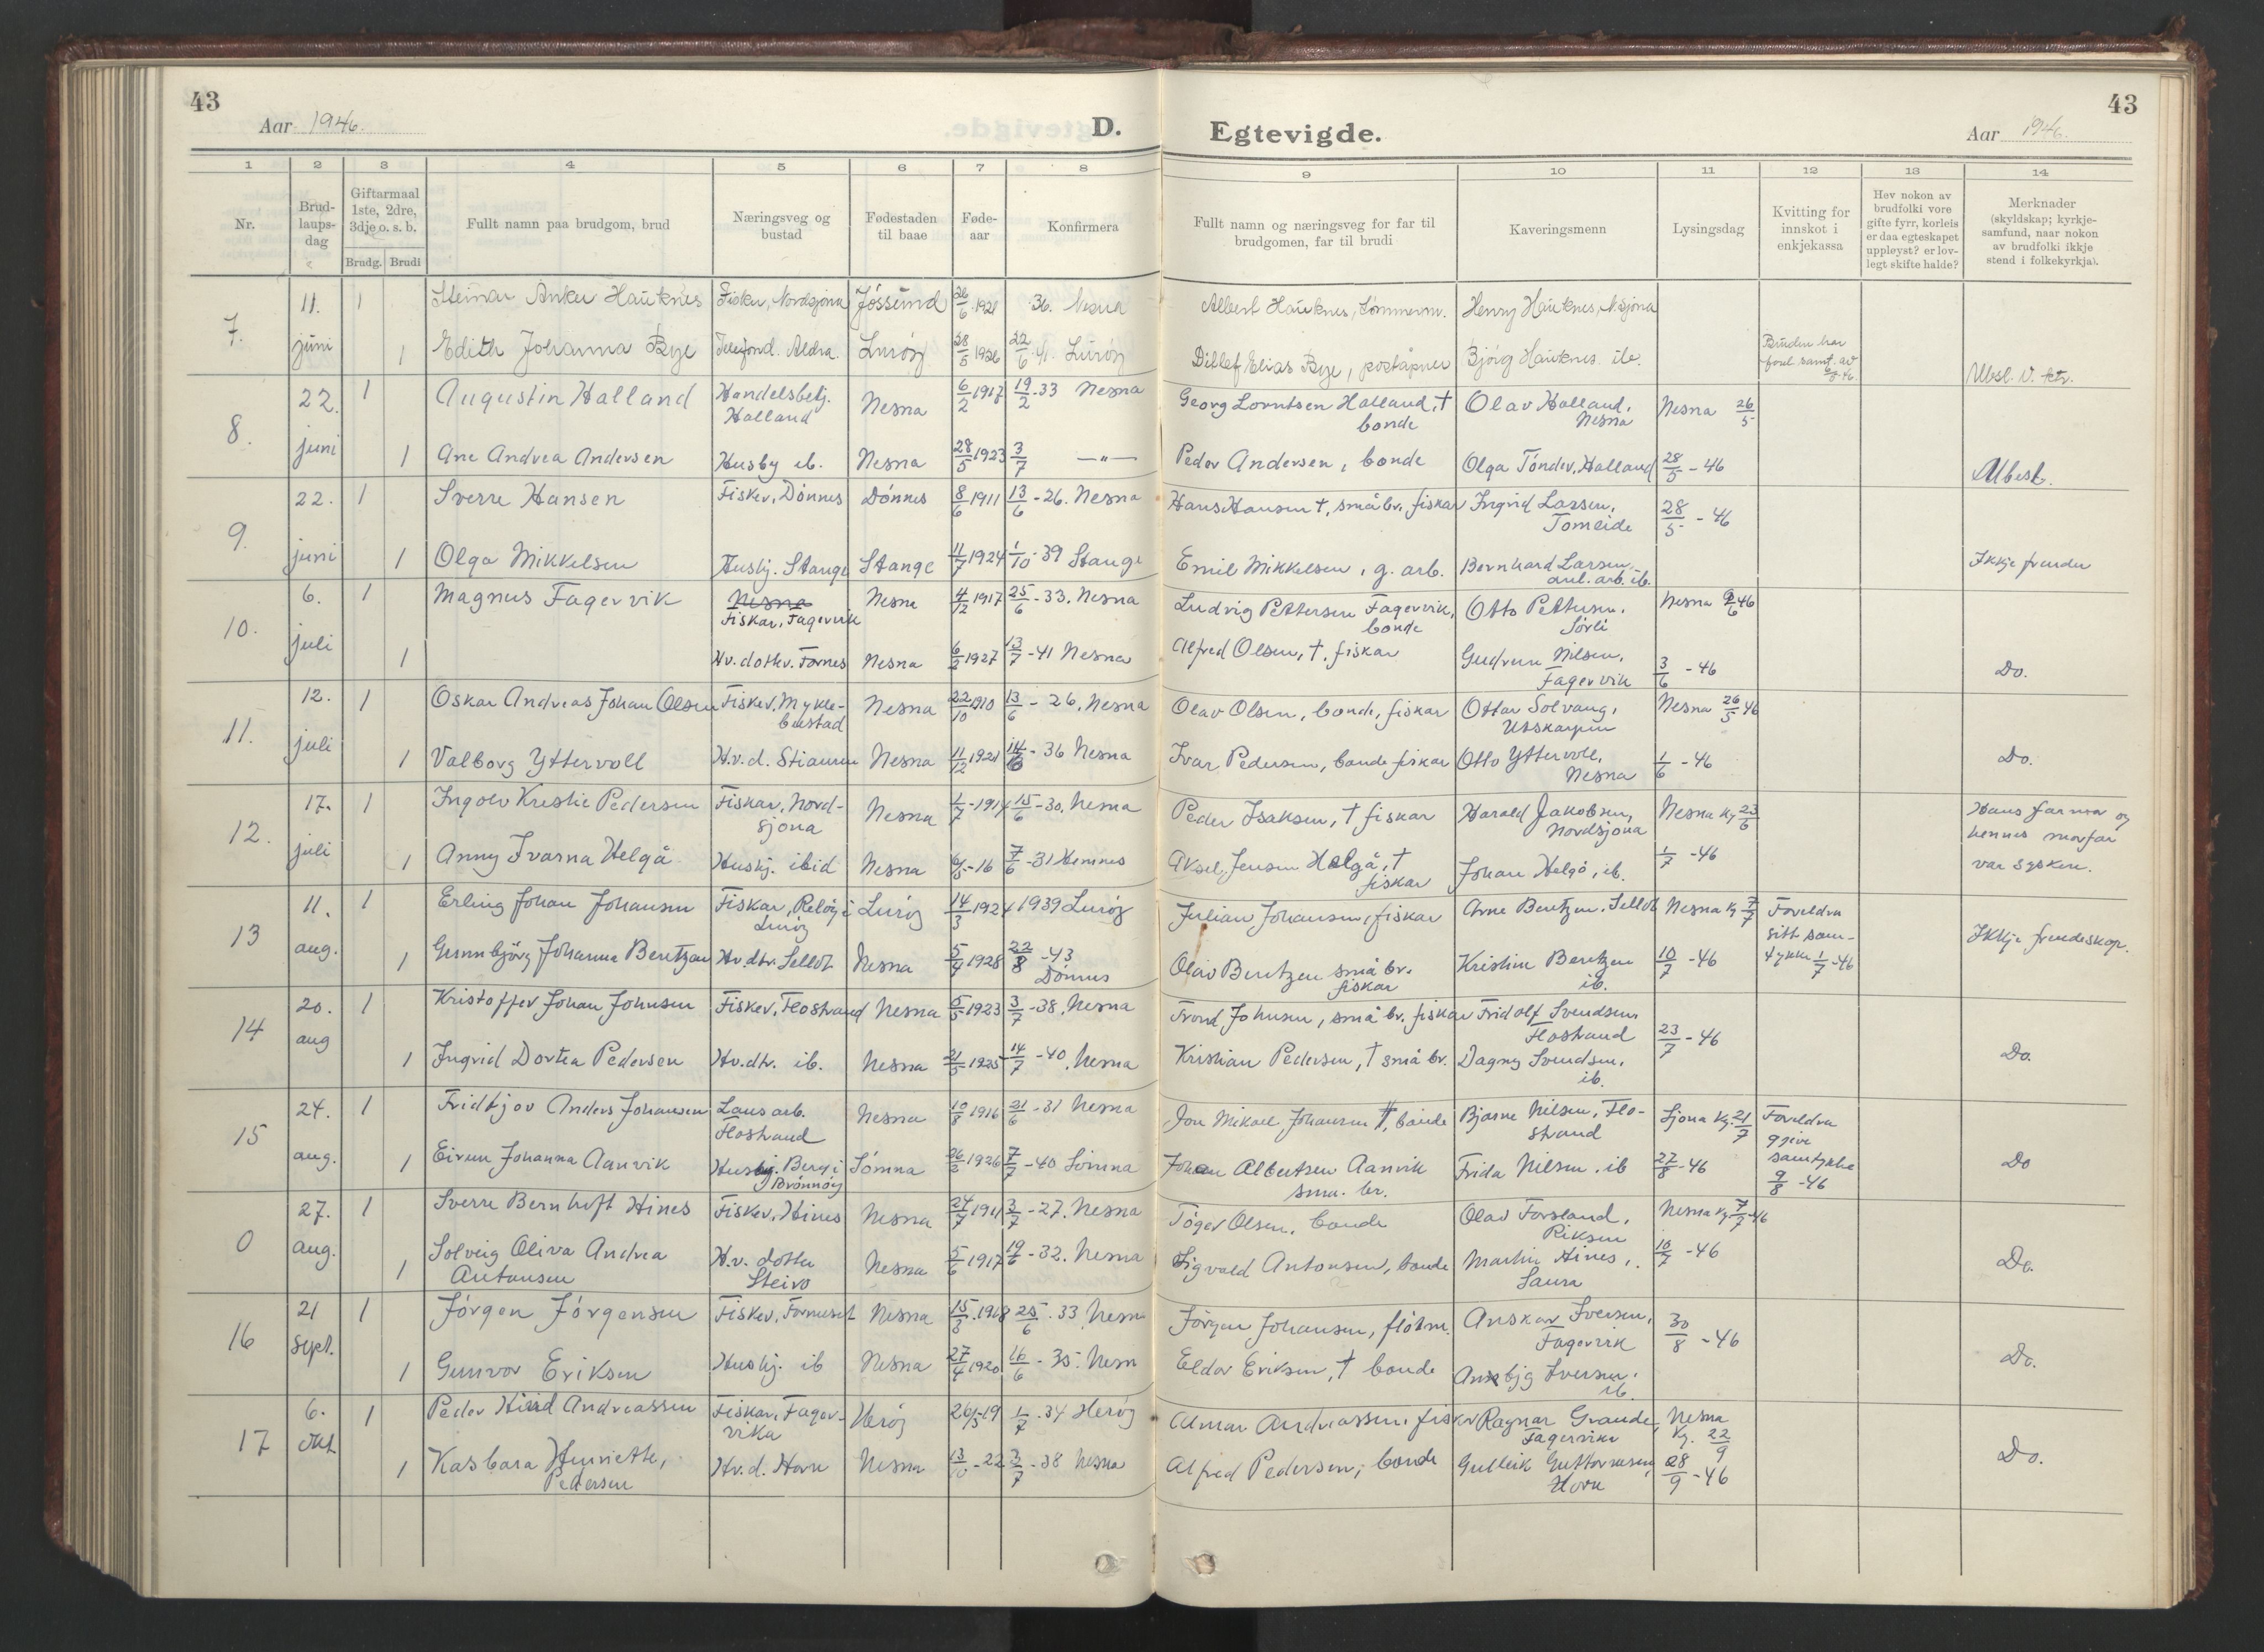 43
Aar 1946.
D.
1 2 3 4 5 6 7 8
Nr.
Brud-
laups-
dag
Giftarmaal
1ste, 2dre,
3dje o. s. b.
Brudg. Brudi
Fullt namn paa brudgom, brud
Næringsveg og
bustad
Fødestaden
til baae
Føde-
aar
Konfirmera
7. 11. juni
1 Steinar Anker Hauknes Fisker, Nordsjona Jøssund 26/6 1921 36. Nesna
1 Edith Johanna Bye Telefond. Aldra. Lurøy 28/5 1926 22/6 41 Lurøy
8. 22. juni
1 Augustin Halland Handelsbetj. Nesna 6/2 1917 19/2 -33 Nesna
Halland
1 Ane Andrea Andersen Husby ib. Nesna 28/5 1923 3/7 —"—
9. 22. juni
1 Sverre Hansen Fisker, Dönnes Dönnes 8/6 1911 13/6 -26. Nesna
1 Olga Mikkelsen Hushj. Stange Stange 11/7 1924 1/10 -39 Stange
10. 6. juli
1 Magnus Fagervik Nesna Nesna 4/12 1917 25/6 -33. Nesna
Fiskar, Fagervik
1 Hv. dotter. Fornes Nesna 6/2 1927 13/7 -41 Nesna
11. 12. juli
1 Oskar Andreas Johan Olsen Fisker, Mykle- Nesna 22/10 1910 13/6 - 26. Nesna
bustad
1 Valborg Yttervoll H.v.d. Nesna 11/12 1921 - 36 Nesna
12. 17. juli
1 Ingolv Pedersen Fiskar, Nord- Nesna 1/7 -1914 15/6 -30. Nesna
sjona
1 Anny Ivarna Helgå Hushj. ibid Nesna 6/5 -16 7/6 -31 Hemnes
13 11. aug.
1 Erling Johan Johansen Fiskar, Reløy i Lurøy 14/3 1924 1939 Lurøy
Lurøy
1 Gunnbjörg Johanna Berntzen Hv. dtr. Selløt Nesna 5/4 1928 22/8 -43
Dönnes
14 20. aug
1 Kristoffer Johan Johnsen Fisker, Flostrand Nesna 5/5 1923 3/7 -38. Nesna
1 Ingrid Dortea Pedersen Hv. dtr. ib. Nesna 21/5 1925 14/7 -40. Nesna
15 24. aug.
1 Fridtjov Anders Johansen Laus arb. Nesna 10/8 1916 21/6 -31 Nesna
Flostrand
1 Eirun Johanna Aanvik Hushj. Berg i Sömna 26/2 1926 7/7 -40 Sömna
Brönnöy
0 27. aug.
1 Sverre Bernhoft Hines Fisker, Hines Nesna 24/7 1911 3/7 -27. Nesna
1 Solveig Oliva Andrea H.v. dotter Nesna 5/6 1917 19/6 -32. Nesna
Antonsen Steiro
16 21 sept.
1 Jörgen Jörgensen Fisker, Nesna 15/8 1918 25/6 . 33 Nesna
1 Gunvor Eriksen Hushj. ib Nesna 27/4 1920 16/6 - 35. Nesn
17 6. okt
1 Peder Andreassen Fiskar, Fager- Herøy 26/5 -19 1/7 -34 Herøy
vika
1 Kasbara Henriette, Hv. d. Horn Nesna 13/10 -22 3/7 -38 Nesna
Pedersen
43
Egtevigde.
Aar 1946.
9 10 11 12 13 14
Fullt namn og næringsveg for far til
brudgomen, far til brudi
Kaveringsmenn
Lysingsdag
Kvitting for
innskot i
enkjekassa
Hev nokon av
brudfolki vore
gifte fyrr, korleis
er daa egteskapet
uppløyst? er lov-
legt skifte halde?
Merknader
(skyldskap; kyrkje-
samfund, naar nokon
av brudfolki ikkje
stend i folkekyrkja).
Albert Hauknes, tömmerm. Henry Hauknes, N.sjona
Ditlef Elias Bye, poståpner Bjørg Hauknes ib. Bruden har
forel. samt. av
6/5 46. Ubesl.
Georg Lorntsen Halland, † Olav Halland, Nesna 26/5
bonde Nesna
Peder Andersen, bonde Olga Tönder, Halland 28/5 -46 Ubesl.
Hans Hansen †, småbr. fiskar Ingrid Larsen, 28/5 - 46
Tomeide
Emil Mikkelsen, g. arb. Bernhard Larsen, Ikkje frender
anl. arb. ib.
Ludvig Pettersen Fagervik, Otto Pettersen, Nesna 9/6 46
bonde Sörli
Alfred Olsen, †, fiskar Gudrun Nilsen, 3/6 -46 Do.
Fagervik
Olav Olsen, bonde, fiskar Ottar Solvang, Nesna 26/5 46
Utskarpen
Ivar Pedersen, bonde fiskar Otto Yttervoll, 1/6 -46 Do.
Nesna
Peder Isaksen, † fiskar Harald Jakobsen, Nesna Ky 23/6 Hans farmor og
Nordsjona hennes morfar
Aksel Jensen Helgå, † Johan Helgå, ib. 1/7 -46 var sysken.
fiskar
Julian Johansen, fiskar Arne Berntzen, Selløt Nesna Ky 7/7 Foreldra
gitt sam-
Olav Berntzen småbr. Kristine Berntzen 10/7 -46 tykke 1/7 -46 Ikkje frendeskap.
fiskar ib.
Trond Johnsen, småbr. fiskar Fridolf Svendsen, 23/7 -46
Flostrand
Kristian Pedersen, † småbr. Dagny Svendsen, Do.
ib.
Jon Mikael Johansen †, bonde Bjarne Nilsen, Flo- Sjona Ky. 21/7 Foreldra
strand gjeve
samtykke
Johan Albertsen Aanvik Frida Nilsen, ib 27/8 -46 9/8 -46 Do
små. br.
Töger Olsen, bonde Olav Forsland, Nesna Ky. 7/7 -46
Sigvald Antonsen, bonde Martin Hines, 10/7 -46 Do.
Saura
Jörgen Johansen, Anskar Iversen, 30/8 -46
Fagervik
Eldor Eriksen, † bonde Iversen, Do.
ib.
Almar Andreassen, fisker Ragnar Grande, Nesna
Fagervika Ky. 22/9
Alfred Pedersen, bonde Gulleik Guttormsen, 28/9 -46 Do.
Horn